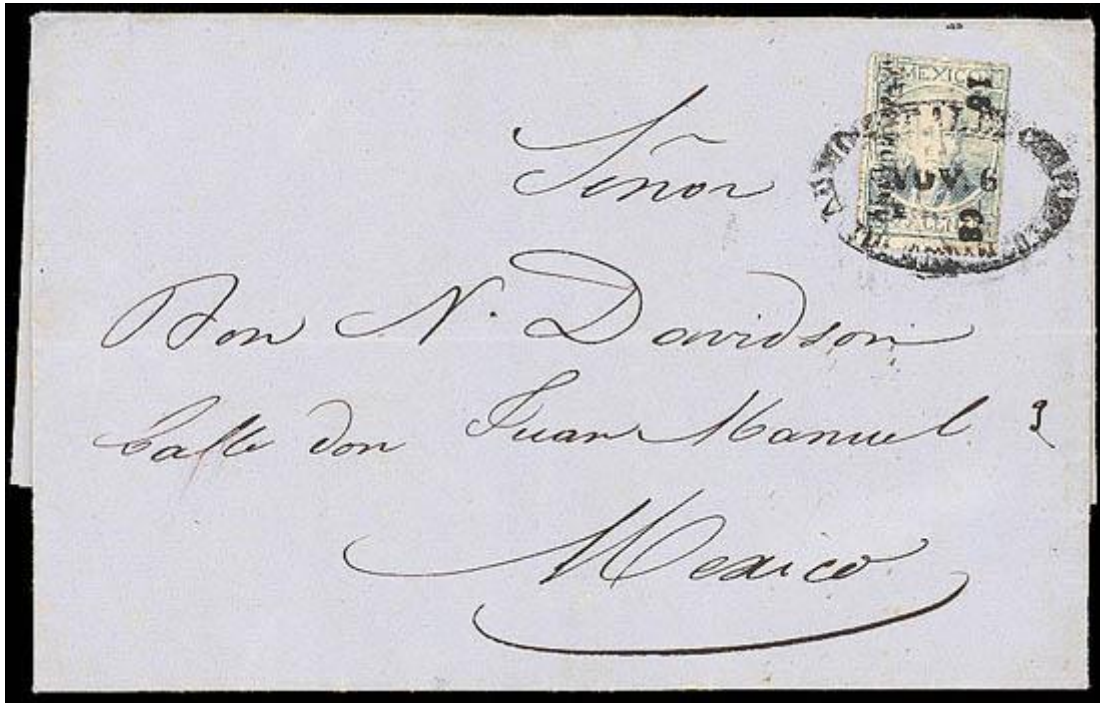 MEXICO
18
NOV 6
68
Señor
Don N. Davidson
Calle don Juan Manuel 9
Mexico